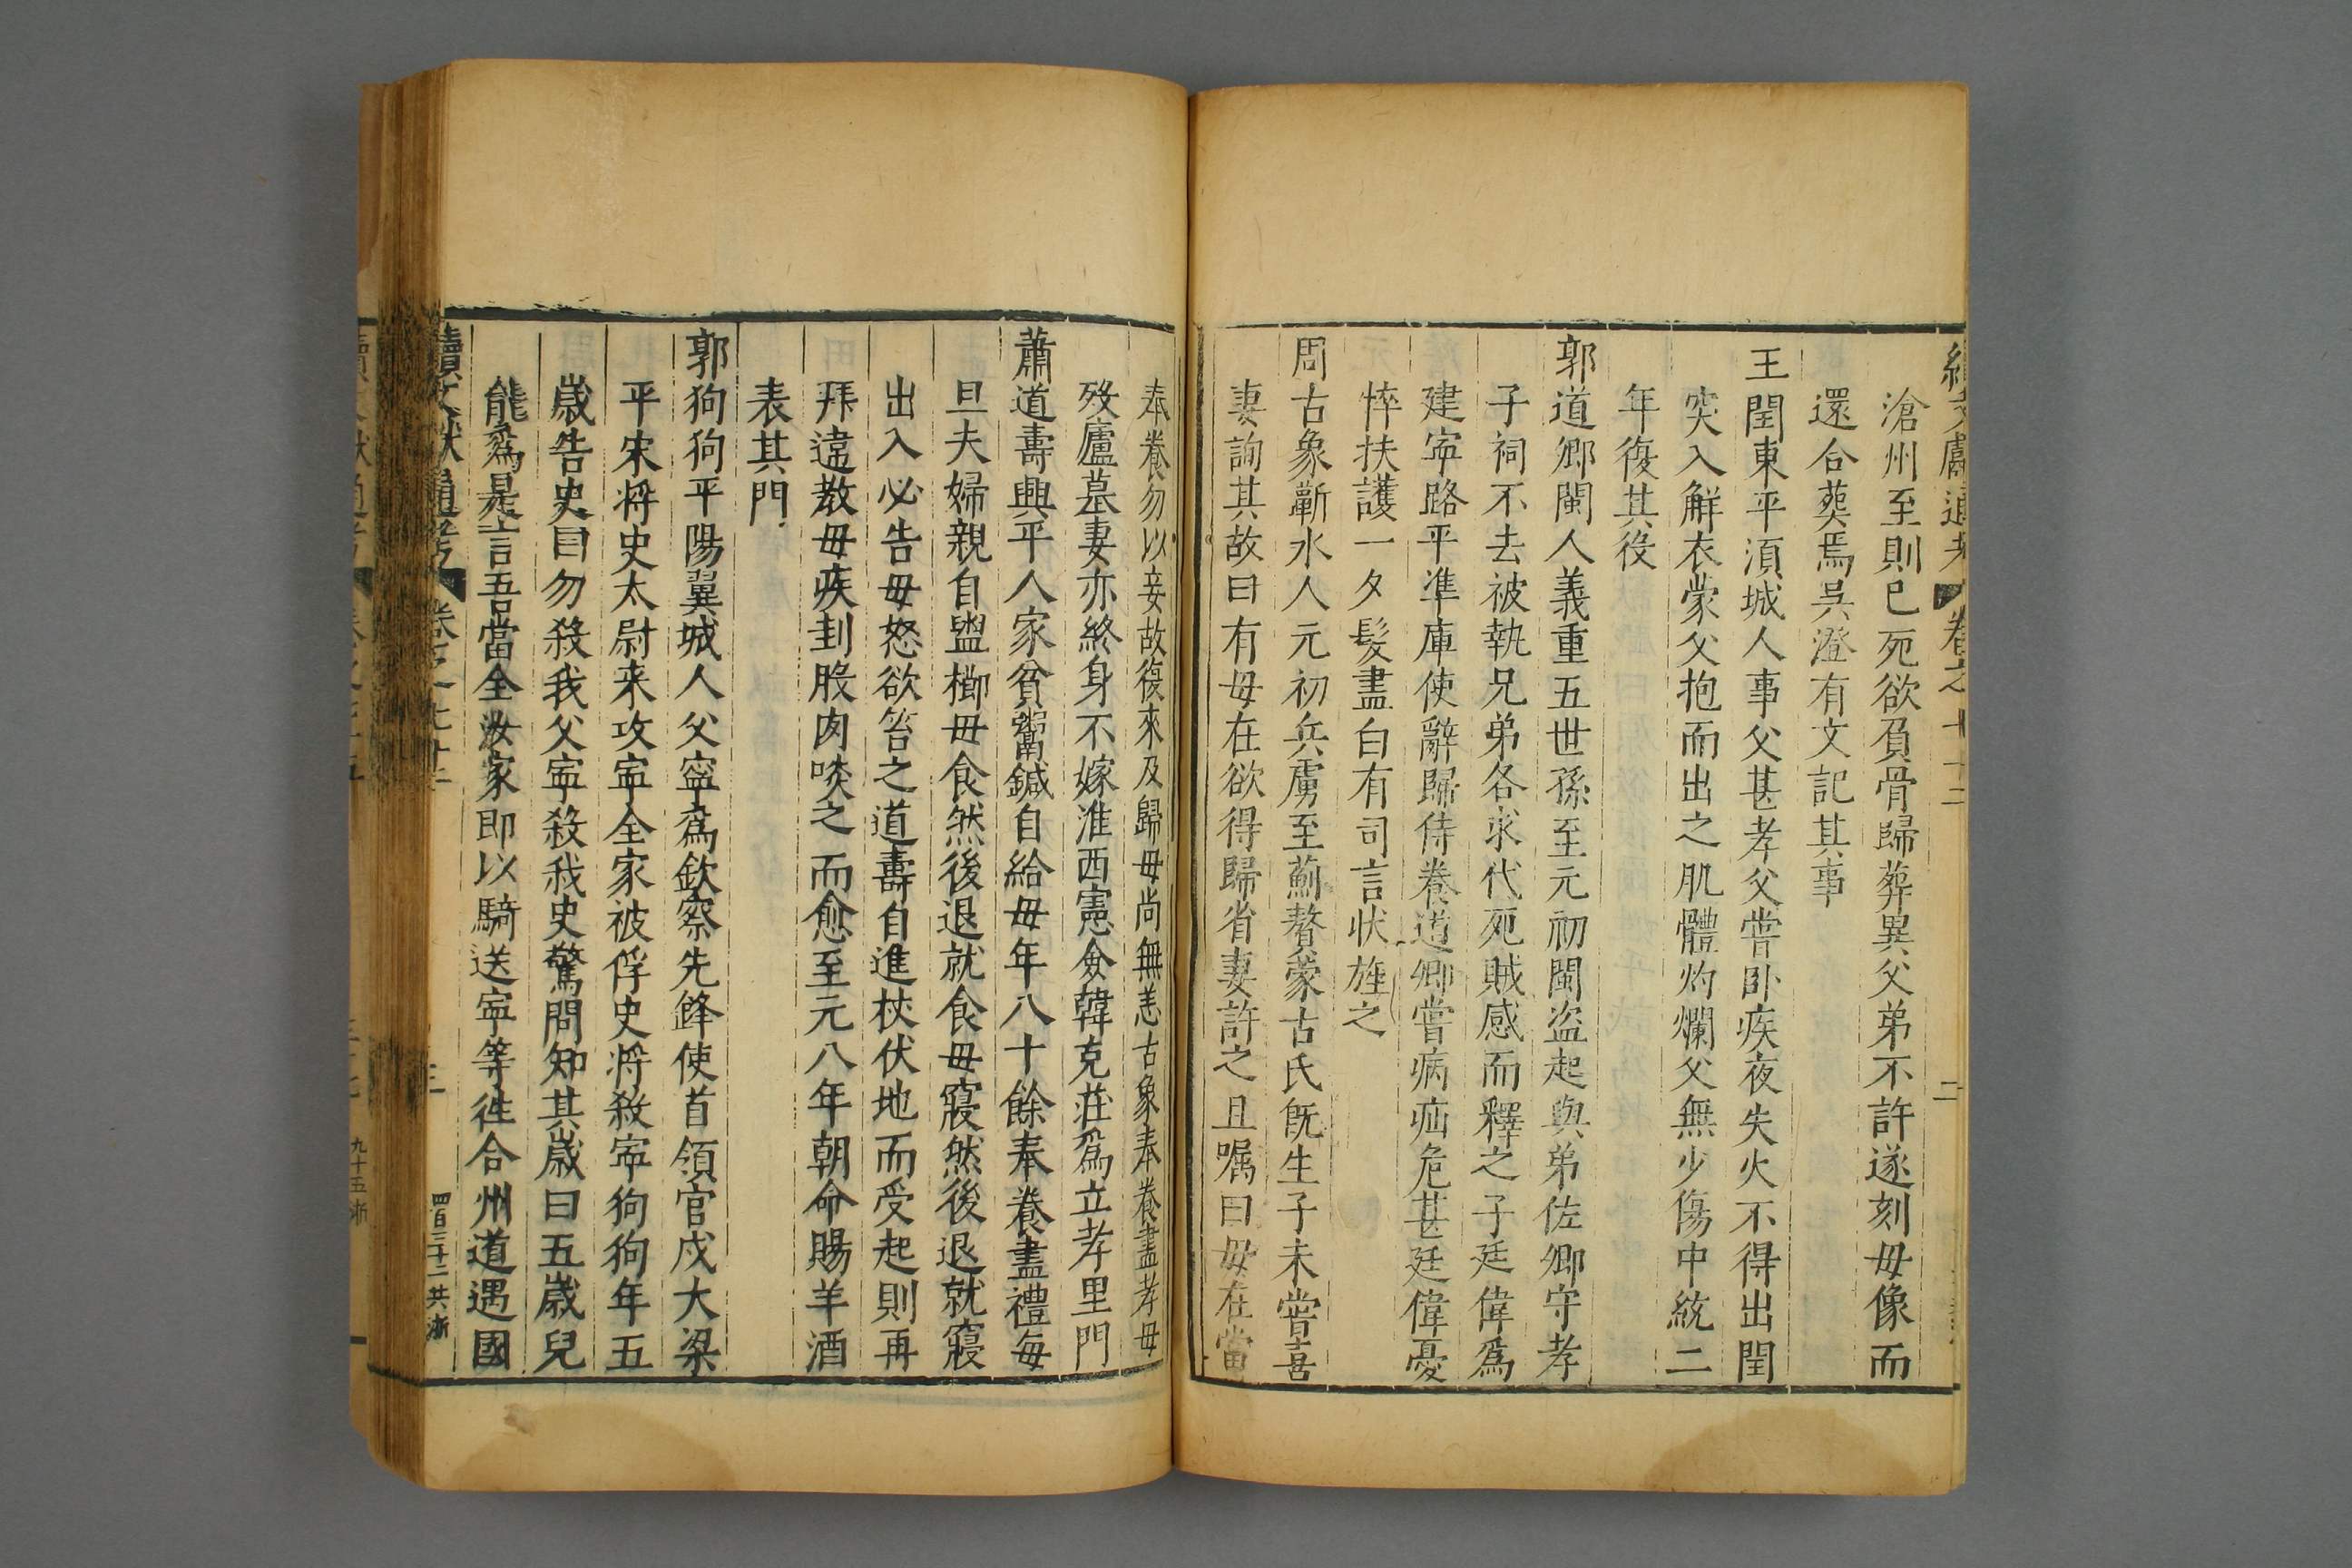 續文獻通考 卷之七十二 二
滄州至則已死欲負骨歸葬異父弟不許遂刻母像而
還合葬焉吳澄有文記其事
王閏東平湏城人事父甚孝父嘗卧疾夜失火不得出閏
突入解衣蒙父抱而出之肌體灼爛父無少傷中統二
年復其役
郭道卿閩人義重五世孫至元初閩盜起與弟佐卿守孝
子祠不去被執兄弟各求代死賊感而釋之子廷偉爲
建寧路平準庫使辭歸侍養道卿嘗病疝危甚廷偉憂
悴扶護一夕髮盡白有司言状旌之
周古象蘄水人元初兵虜至薊贅蒙古氏旣生子未嘗喜
妻詢其故曰有母在欲得歸省妻許之且嘱曰母在當
奉養勿以妾故復來及歸母尚無恙古象奉養盡孝母
殁廬墓妻亦終身不嫁淮西憲僉韓克莊爲立孝里門
蕭道壽興平人家貧鬻鍼自給母年八十餘奉養盡禮每
旦夫婦親自盥櫛母食然後退就食母寢然後退就寢
出入必告母怒欲笞之道壽自進杖伏地而受起則再
拜違教母疾刲股肉啖之而愈至元八年朝命賜羊酒
表其門
郭狗狗平陽翼城人父寧爲欽察先鋒使首領官戍大梁
平宋将史太尉来攻寧全家被俘史将殺寧狗狗年五
歲告史曰勿殺我父寧殺我史驚問知其歲曰五歲兒
能爲是言吾當全汝家即以騎送寧等徃合州道遇國
續文獻通考 卷之七十二 三 四百三十二 共 浙
九十五 浙